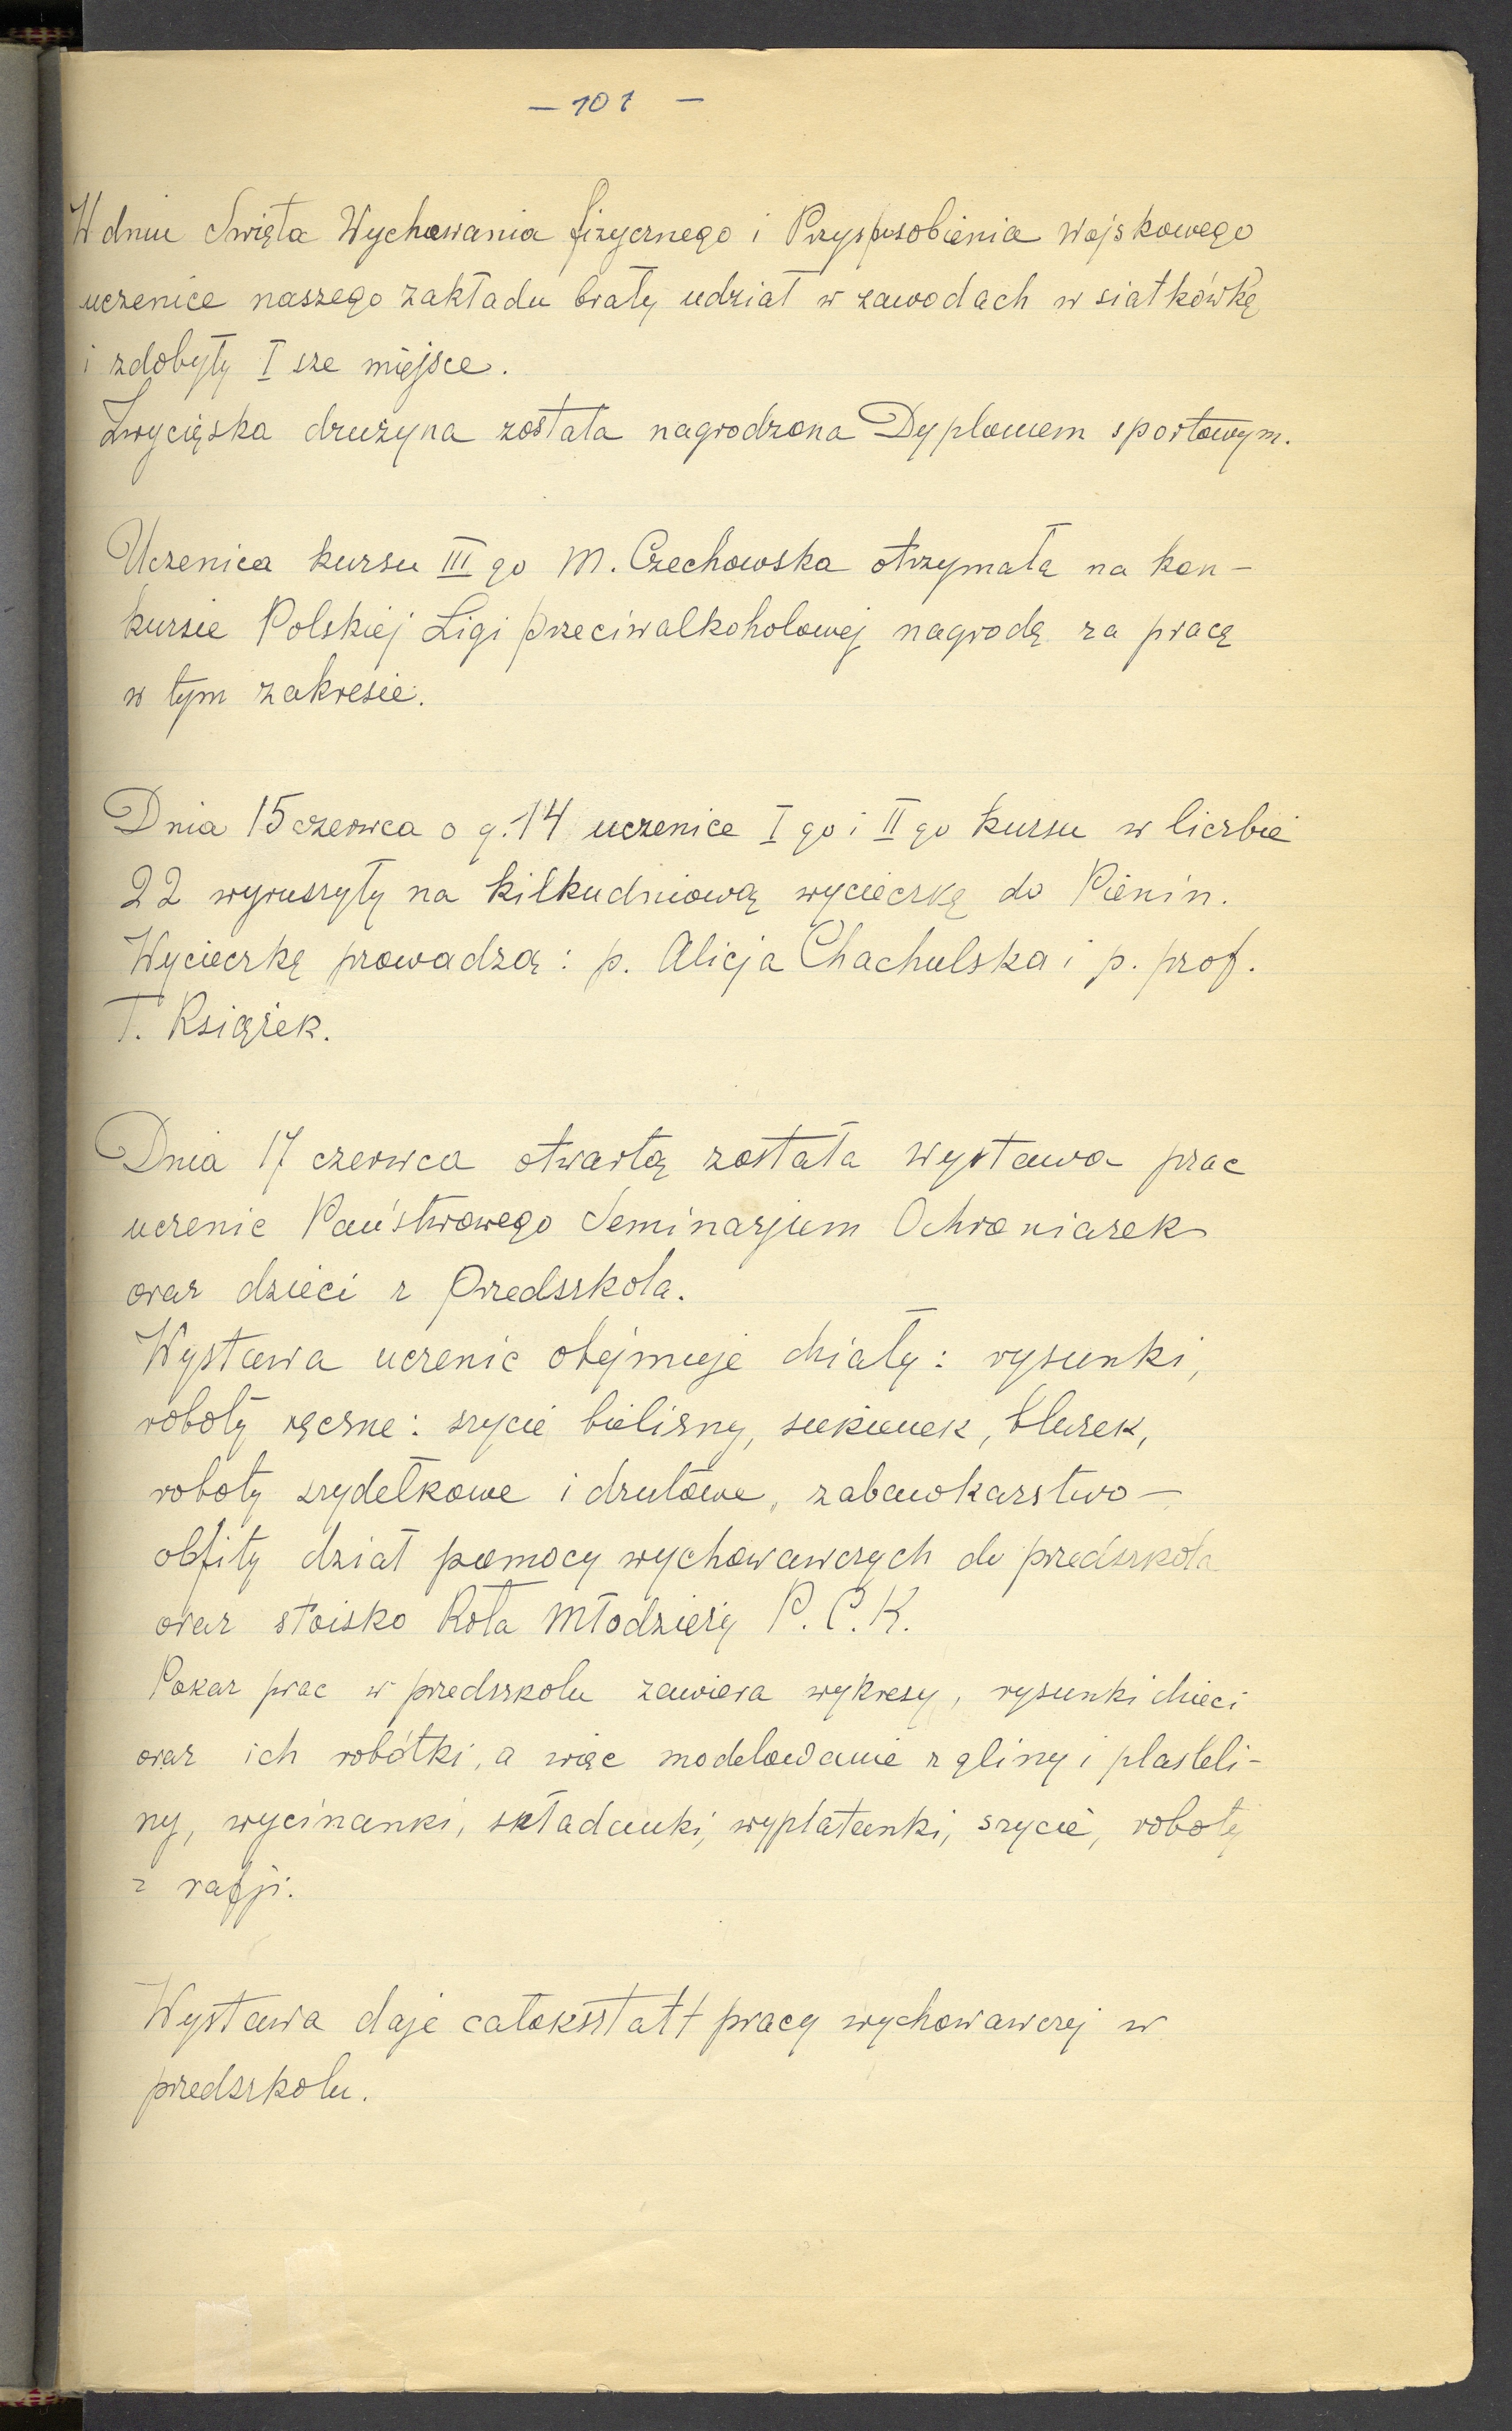 — 101 —
W dniu Święta Wychowania fizycznego i Przysposobienia Wojskowego
uczenice naszego zakładu brały udział w zawodach w siatkówkę
i zdobyły I sze miejsce.
Zwycięska drużyna została nagrodzona Dyplomem sportowym.
Uczenica kursu III go M. Czechowska otrzymała na kon-
kursie Polskiej Ligi przeciwalkoholowej nagrodę za pracę
w tym zakresie.
Dnia 15 czerwca o g. 14 uczenice I go i II go kursu w liczbie
22 wyruszyły na kilkudniową wycieczkę do Pienin.
Wycieczkę prowadzą: p. Alicja Chachulska i p. prof.
T. Książek.
Dnia 17 czerwca otwartą została wystawa prac
uczenic Państwowego Seminarjum Ochroniarek
oraz dzieci z Przedszkola.
Wystawa uczenic obejmuje działy: rysunki,
roboty ręczne: szycie bielizny, sukienek, bluzek,
roboty szydełkowe i drutowe, zabawkarstwo —
obfity dział pomocy wychowawczych do przedszkola
oraz stoisko Koła Młodzieży P.C.K.
Pokaz prac w przedszkolu zawiera wykresy, rysunki dzieci
oraz ich robótki, a więc modelowanie z gliny i plasteli-
ny, wycinanki, składanki, wyplatanki, szycie, roboty
z rafji.
Wystawa daje całoksztatt pracy wychowawczej w
przedszkolu.